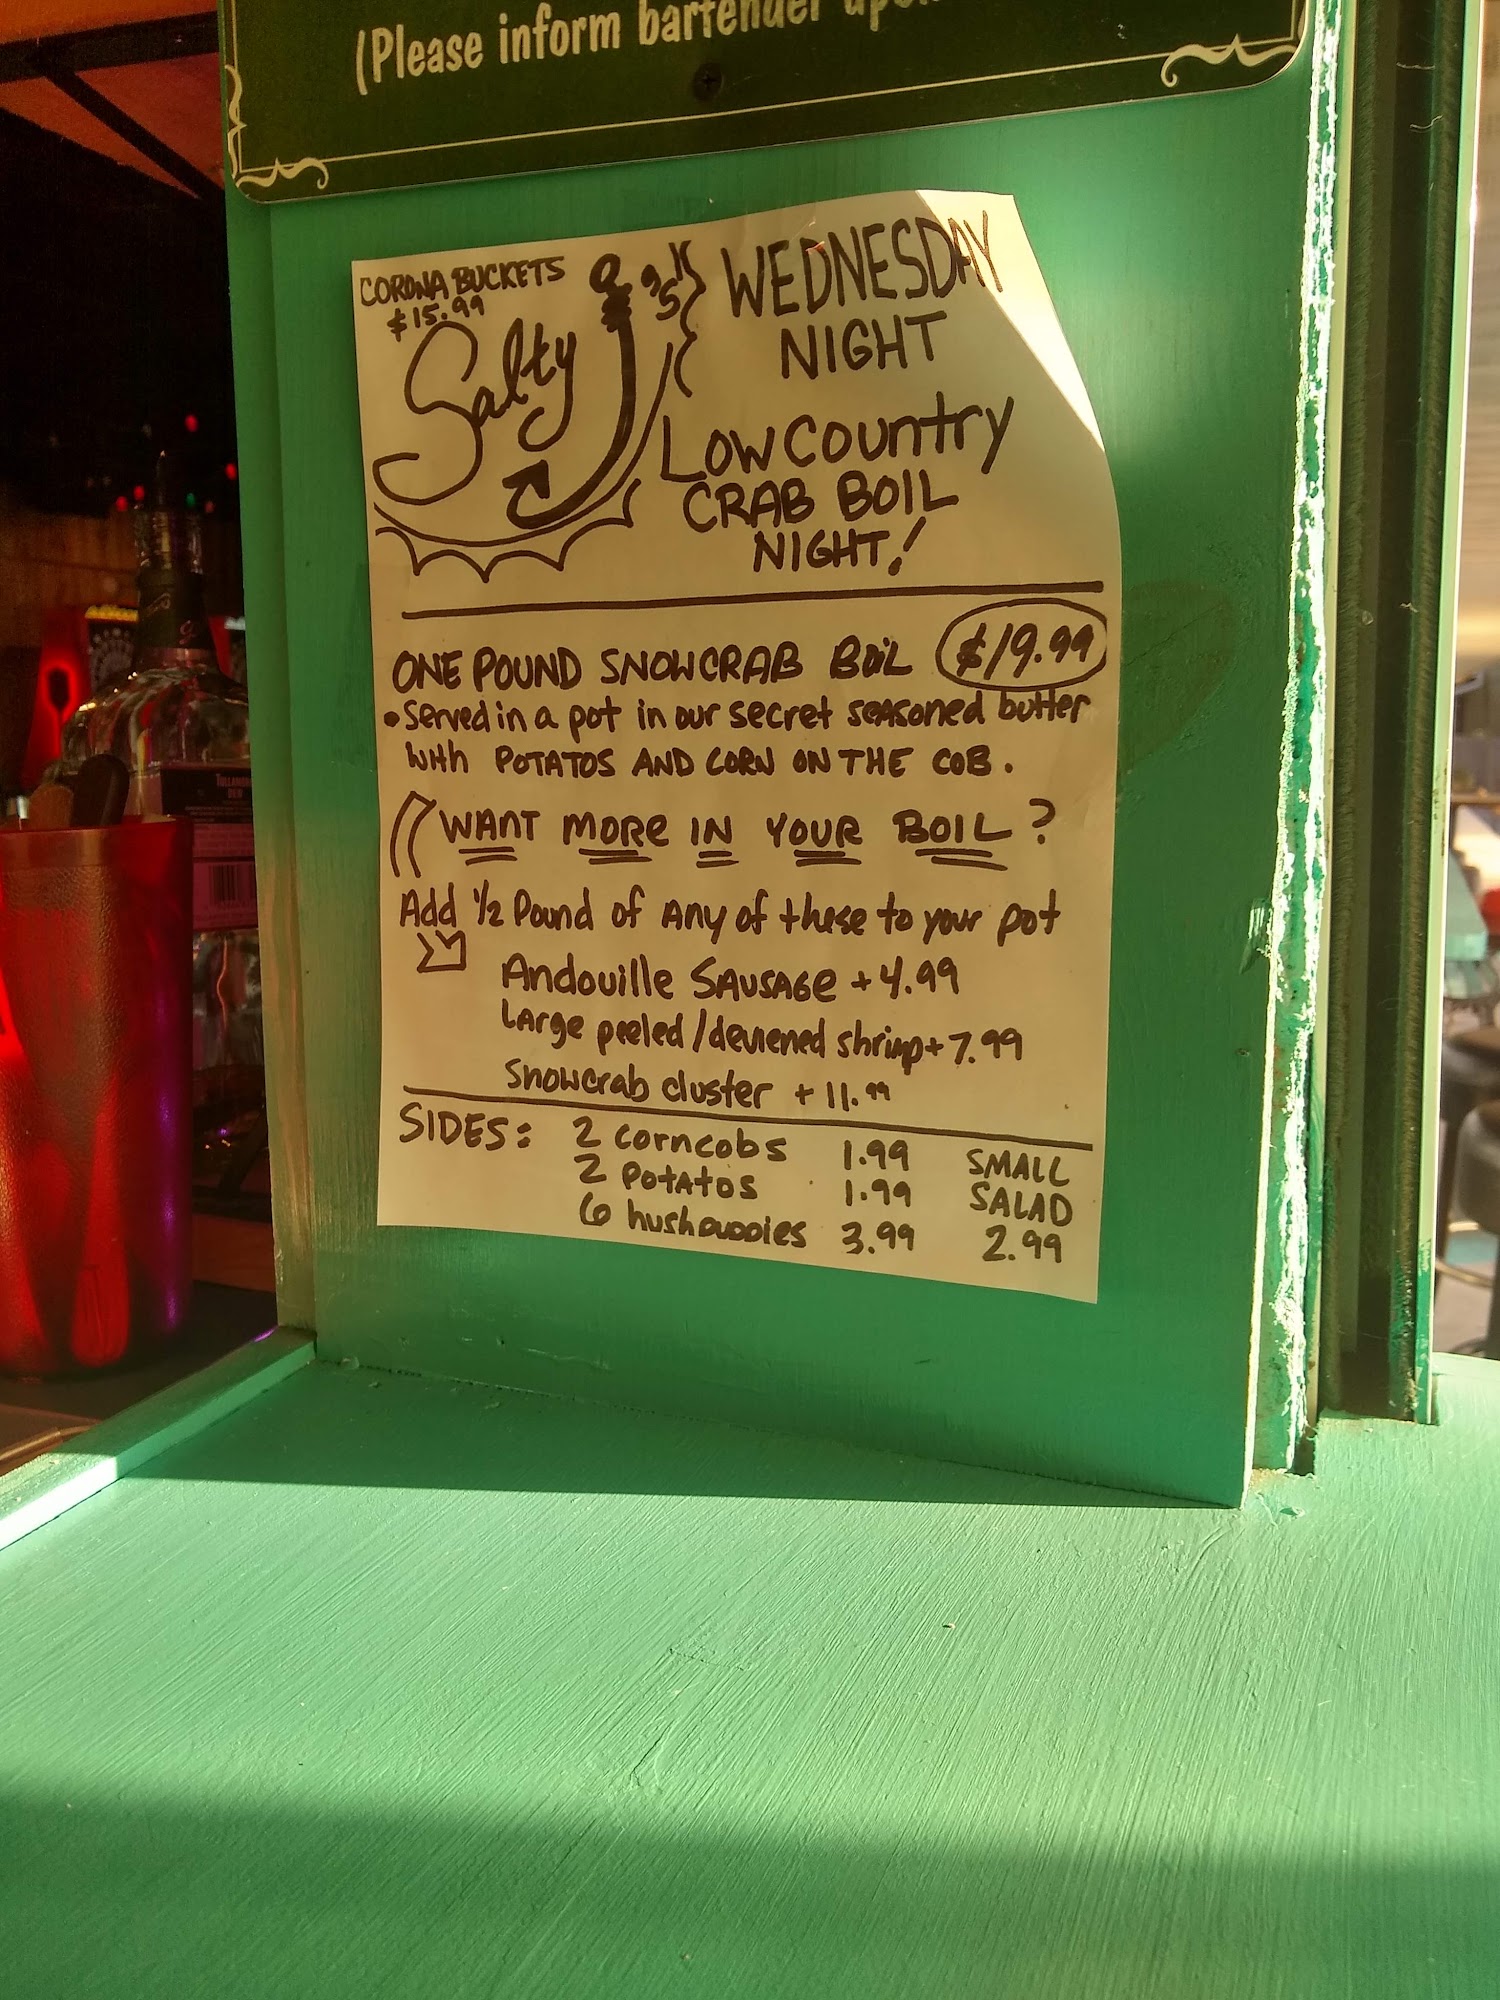 (Please inform bartender
CORONA BUCKETS
$15.99
Salty J's
WEDNESDAY
NIGHT
LOWCOUNTRY
CRAB BOIL
NIGHT!
ONE POUND SNOWCRAB BOIL $19.99
• Served in a pot in our secret seasoned butter
with POTATOS AND CORN ON THE COB.
WANT MORE IN YOUR BOIL?
Add 1/2 Pound of Any of these to your pot
Andouille SAUSAGe + 4.99
LArge peeled/deviened shrimp + 7.99
Snowcrab cluster + 11.99
SIDES: 2 corncobs 1.99 SMALL
2 POTATOS 1.99 SALAD
6 hushpuppies 3.99 2.99
TULLAMORE
DEW